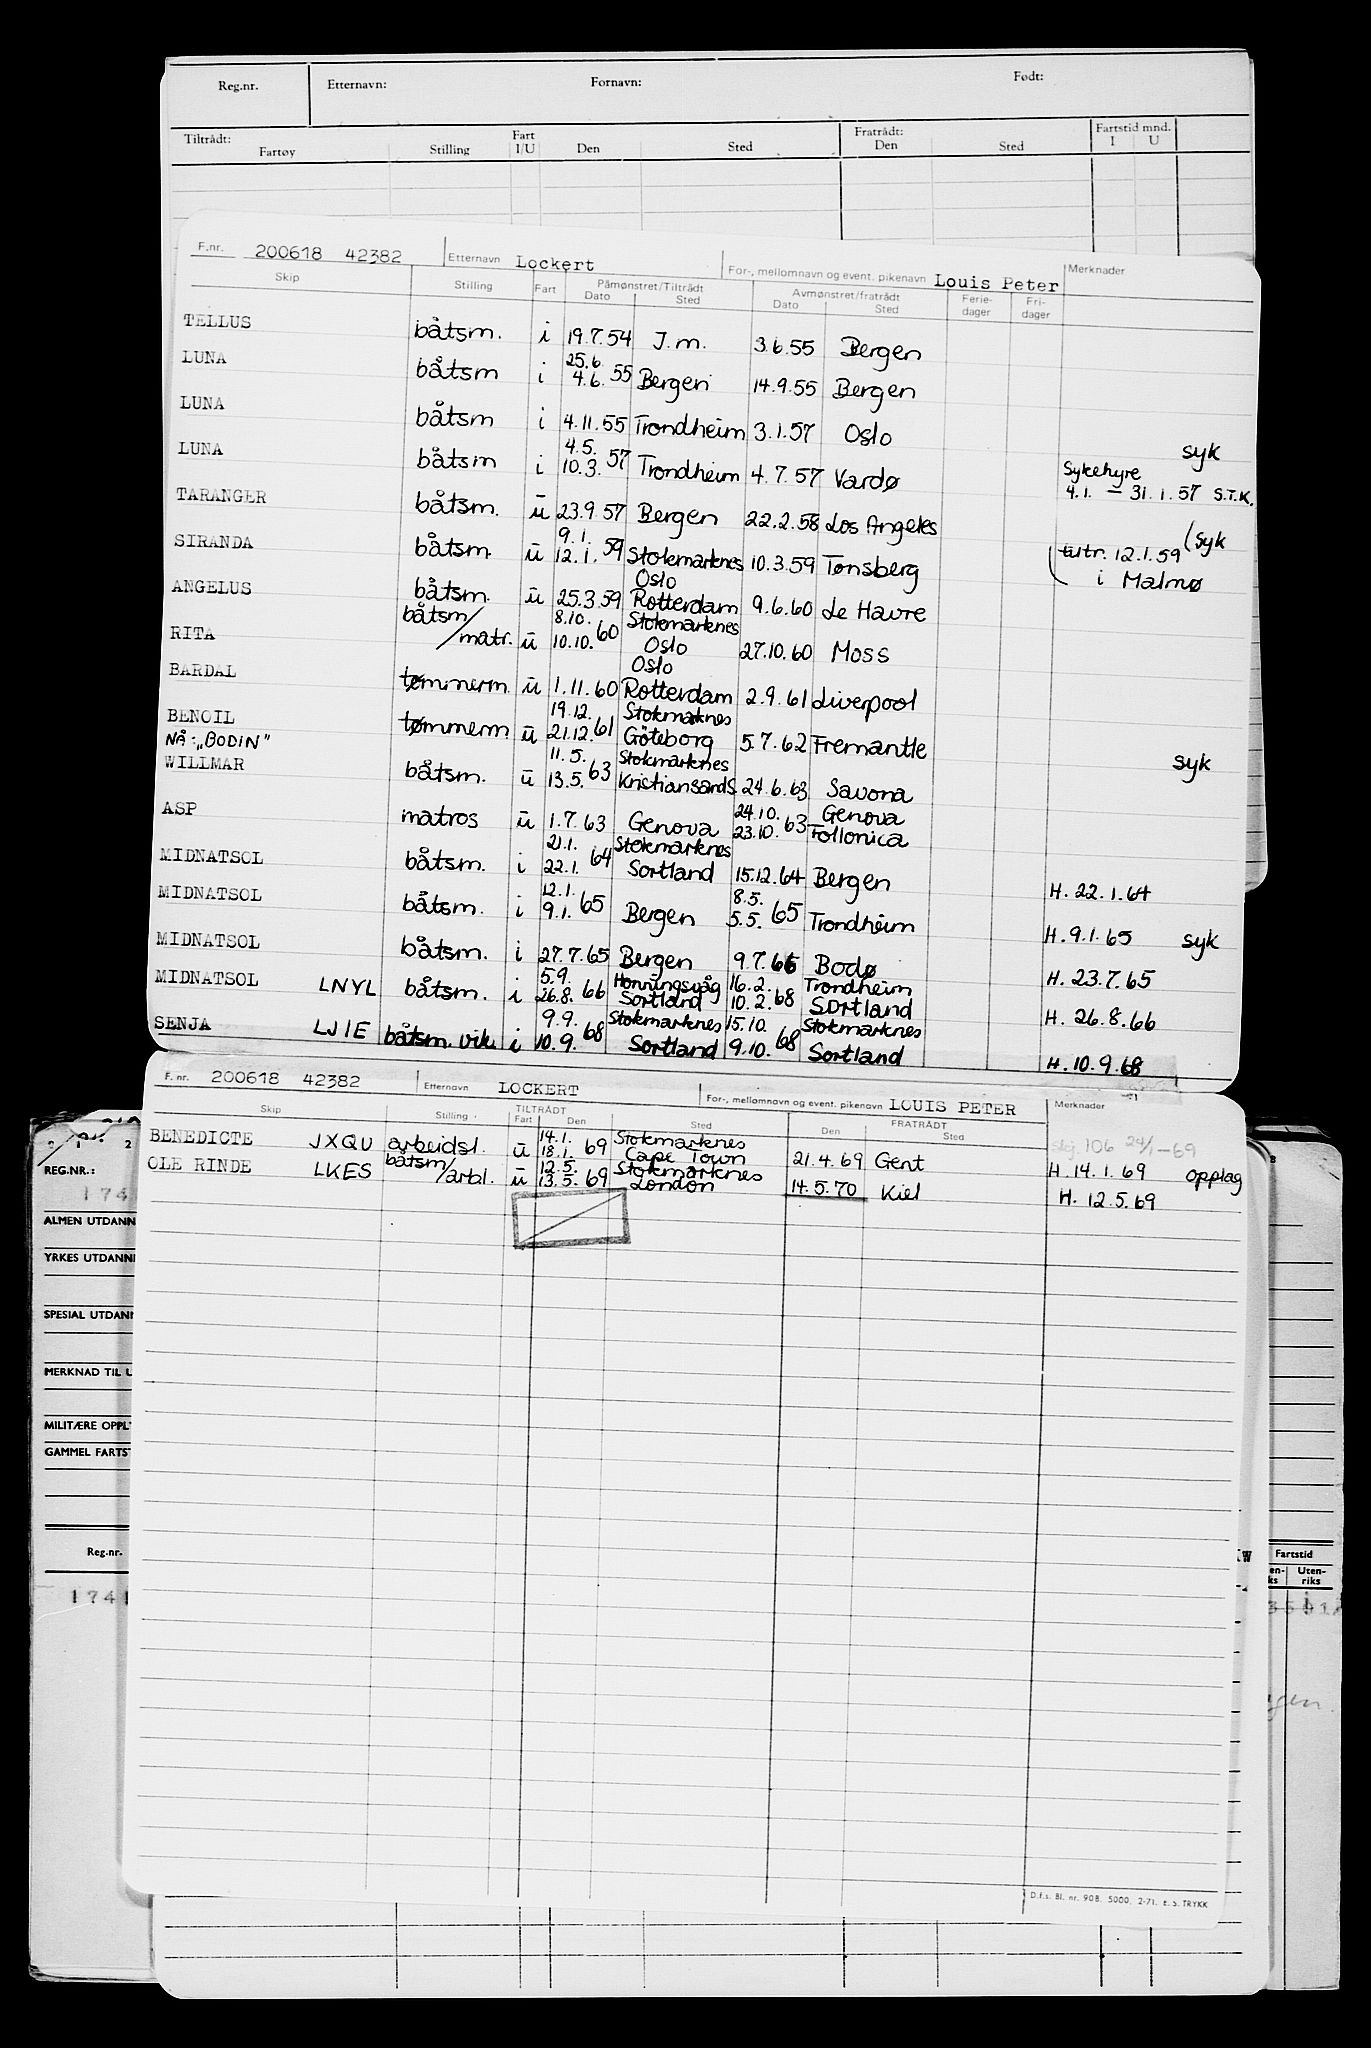 Reg.nr. Etternavn: Fornavn: Født:
Tiltrådt: Fart Fratrådt: Fartstid mnd.
Fartøy Stilling I/U Den Sted Den Sted I U
F.nr. 200618 42382 Etternavn Lockert For-, mellomnavn og event. pikenavn Louis Peter Merknader
Skip Stilling Fart Påmønstret/Tiltrådt Avmønstret/fratrådt Ferie- Fri-
Dato Sted Dato Sted dager dager
TELLUS båtsm. i 19.7.54 J.m. 3.6.55 Bergen
25.6.
LUNA båtsm i 4.6. 55 Bergen 14.9.55 Bergen
LUNA båtsm i 4.11.55 Trondheim 3.1.57 Oslo syk
4.5. Sykehyre
LUNA båtsm i 10.3. 57 Trondheim 4.7.57 Vardø 4.1. – 31.1.57 S.T.K.
TARANGER båtsm. ū 23.9.57 Bergen 22.2.58 Los Angeles (syk
9.1. tiltr. 12.1.59
SIRANDA båtsm. ū 12.1. 59 Stokmarknes 10.3.59 Tønsberg i Malmø
Oslo
ANGELUS båtsm. ū 25.3.59 Rotterdam 9.6.60 Le Havre
båtsm/ 8.10. Stokmarknes
RITA matr. ū 10.10. 60 Oslo 27.10.60 Moss
Oslo
BARDAL tømmerm. ū 1.11.60 Rotterdam 2.9.61 Liverpool
19.12. Stokmarknes
BENOIL tømmerm ū 21.12. 61 Göteborg 5.7.62 Fremantle syk
NÅ: „BODIN" 11.5. Stokmarknes
WILLMAR båtsm. ū 13.5. 63 Kristiansand S. 24.6.63 Savona
24.10. Genova
ASP matros ū 1.7.63 Genova 23.10. 63 Follonica
21.1. Stokmarknes
MIDNATSOL båtsm. i 22.1. 64 Sortland 15.12.64 Bergen H. 22.1.64
12.1. 8.5.
MIDNATSOL båtsm. i 9.1. 65 Bergen 5.5. 65 Trondheim H. 9.1.65 syk
MIDNATSOL båtsm. i 27.7.65 Bergen 9.7.66 Bodø H. 23.7.65
5.9. Honningsvåg 16.2. Trondheim
MIDNATSOL LNYL båtsm. i 26.8. 66 Sortland 10.2. 68 Sortland H. 26.8.66
9.9. Stokmarknes 15.10. Stokmarknes
SENJA LJIE båtsm. vik. i 10.9. 68 Sortland 9.10. 68 Sortland H. 10.9.68
F. nr. 200618 42382 Etternavn LOCKERT For-, mellomnavn og event. pikenavn LOUIS PETER Merknader
Skip Stilling TILTRÅDT FRATRÅDT
Fart Den Sted Den Sted
106 24/1-69
14.1. Stokmarknes
BENEDICTE JXQU arbeidsl. ū 18.1. 69 Cape Town 21.4.69 Gent H. 14.1.69 opplag
båtsm/ 12.5. Stokmarknes
OLE RINDE LKES arbl. ū 13.5. 69 London 14.5.70 Kiel H. 12.5.69
REG.NR.:
174
ALMEN UTDANN
YRKES UTDANN
SPESIAL UTDANN
MERKNAD TIL U
MILITÆRE OPPL
GAMMEL FARTS
Reg.-nr.
174
Fartstid
en- Uten-
ks riks
D.f.s. Bl. nr. 908. 5000, 2-71. E. S. TRYKK